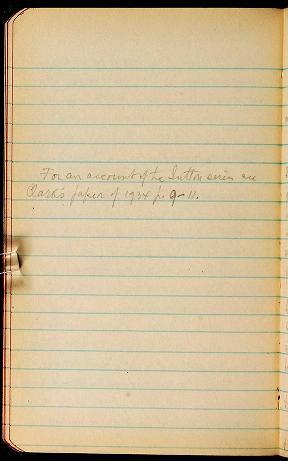 For an account of the Sutton series see
Clark's paper of 1934 p. 9-11.